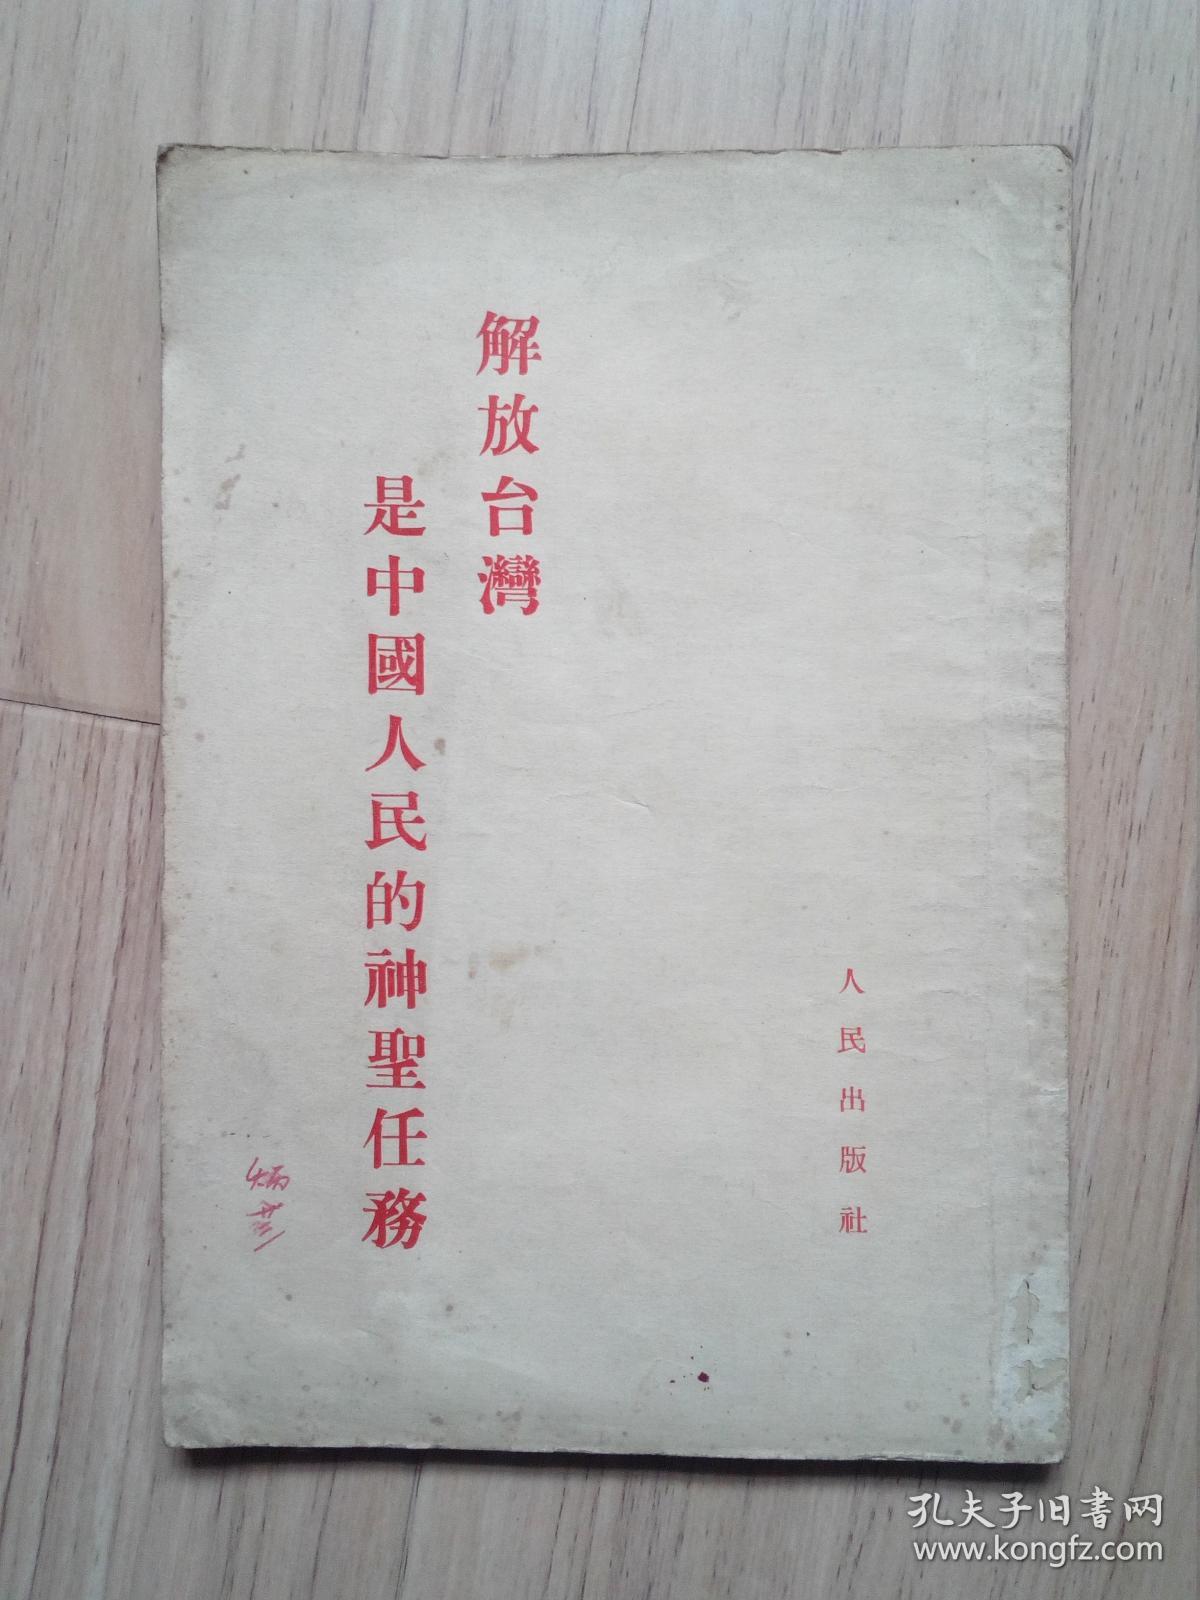 解放台灣
是中國人民的神聖任務
人民出版社
孔夫子旧书网
www.kongfz.com